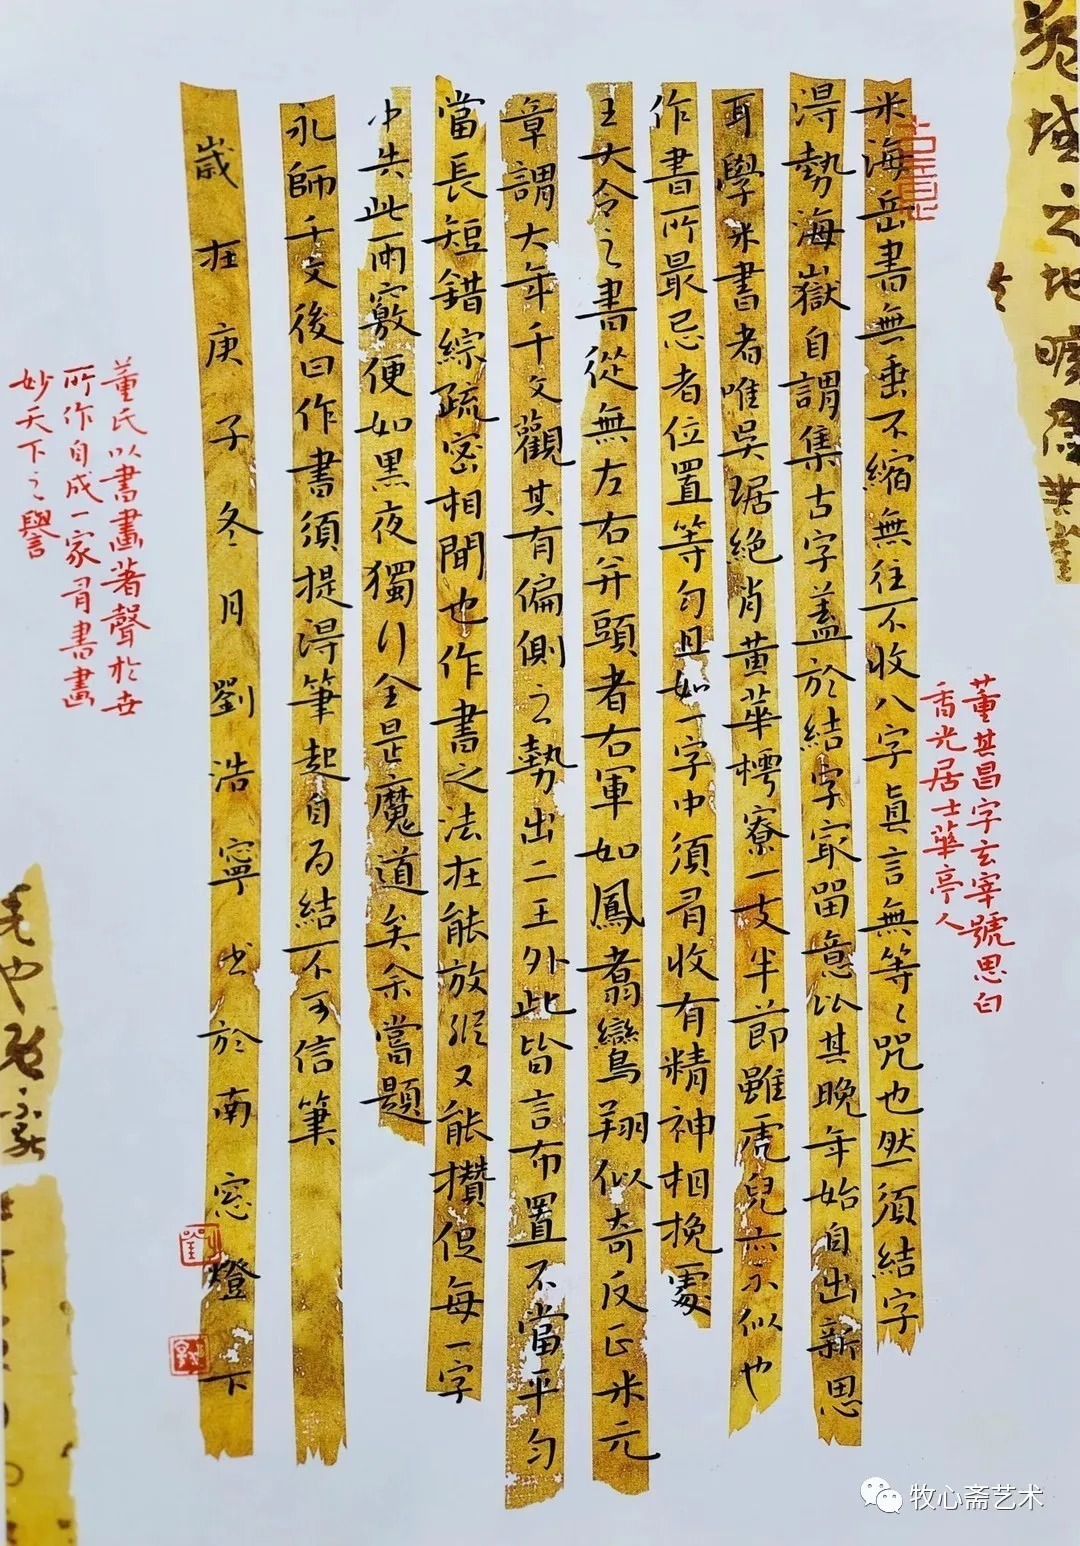 米海岳書無垂不縮無往不收八字真言無等〻咒也然須結字
得勢海嶽自謂集古字蓋於結字冣留意以其晚年始自出新思
耳學米書者唯吳琚絶肖黃華樗寮一支半節雖虎兒亦不似也
作書所最忌者位置等勻且如一字中須有收有精神相挽處
王大令之書從無左右并頭者右軍如鳳翥鸞翔似奇反正米元
章謂大年千文觀其有偏側之勢出二王外此皆言布置不當平勻
當長短錯綜疏密相間也作書之法在能放縱又能攢促每一字
中失此兩竅便如黑夜獨行全是魔道矣余嘗題
永師千文後曰作書須提得筆起自為結不可信筆
歲在庚子冬月劉浩寧书於南窓燈下
董其昌字玄宰號思白
香光居士華亭人
董氏以書畫著聲於世
所作自成一家有書畫
妙天下之譽
牧心斋艺术